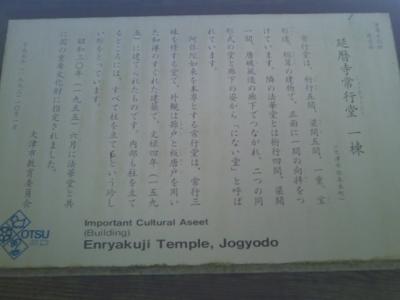 重要文化財
建造物
延暦寺常行堂 一棟
(大津市坂本本町)
常行堂は、桁行五間、梁間五間、一重、宝
形造、栩葺の建物で、正面に一間の向拝をつ
けています。隣の法華堂とは桁行四間、梁間
一間、唐破風造の廊下でつながれ、二つの同
形式の堂と廊下の姿から「にない堂」と呼ば
れています。
阿弥陀如来を本尊とする常行堂は、常行三
昧を修する堂で、外観は蔀戸と板唐戸を用い
た和様のすぐれた建築で、文禄四年(一五九
五)に建てられたものです。内部も柱を立て
るところには、すべて柱を立てるという珍し
い形をとっています。
昭和三〇年(一九五五)六月に法華堂と共
に国の重要文化財に指定されました。
大津市教育委員会
OTSU
Important Cultural Aseet
(Building)
Enryakuji Temple, Jogyodo